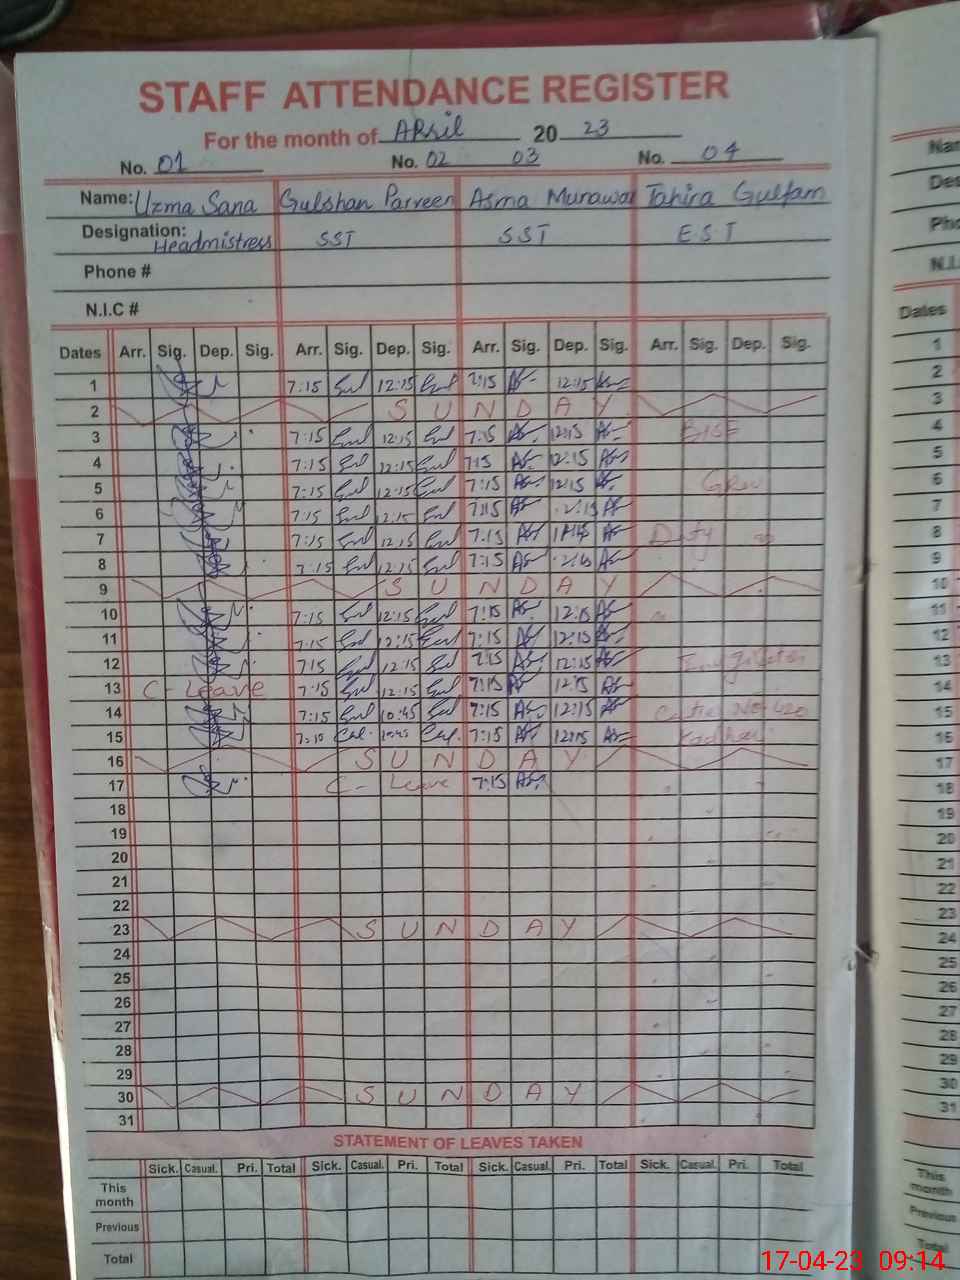 STAFF ATTENDANCE REGISTER
For the month of April 20 23
No. 01 No. 02 03 No. 04
Name: Uzma Sana Gulshan Parveen Asma Munawar Tahira Gulfam
Designation: Headmistress SST SST E.S.T
Phone #
N.I.C #
Dates Arr. Sig. Dep. Sig. Arr. Sig. Dep. Sig. Arr. Sig. Dep. Sig. Arr. Sig. Dep. Sig.
1 7:15 12:15 7:15 12:15
2 SUNDAY
3 7:15 12:15 7:15 12:15 BISE
4 7:15 12:15 7:15 12:15
5 7:15 12:15 7:15 12:15
6 7:15 12:15 7:15
7 7:15 12:15 7:15 Duty
8 7:15 12:15 7:15
9 SUNDAY
10 7:15 12:15 7:15 12:15
11 7:15 12:15 7:15 12:15
12 7:15 12:15 7:15 12:15
13 C-Leave 7:15 12:15 7:15 12:15
14 7:15 10:45 7:15 12:15
15 10:45 7:15 12:15
16 SUNDAY
17 C- Leave 7:15
18
19
20
21
22
23 SUNDAY
24
25
26
27
28
29
30 SUNDAY
31
STATEMENT OF LEAVES TAKEN
Sick. Casual. Pri. Total Sick. Casual. Pri. Total Sick. Casual. Pri. Total Sick. Casual. Pri. Total
This month
Previous
Total
Dates
1
2
3
4
5
6
7
8
9
10
11
12
13
14
15
16
17
18
19
20
21
22
23
24
25
26
27
28
29
30
31
This month
Previous
Total
17-04-23 09:14